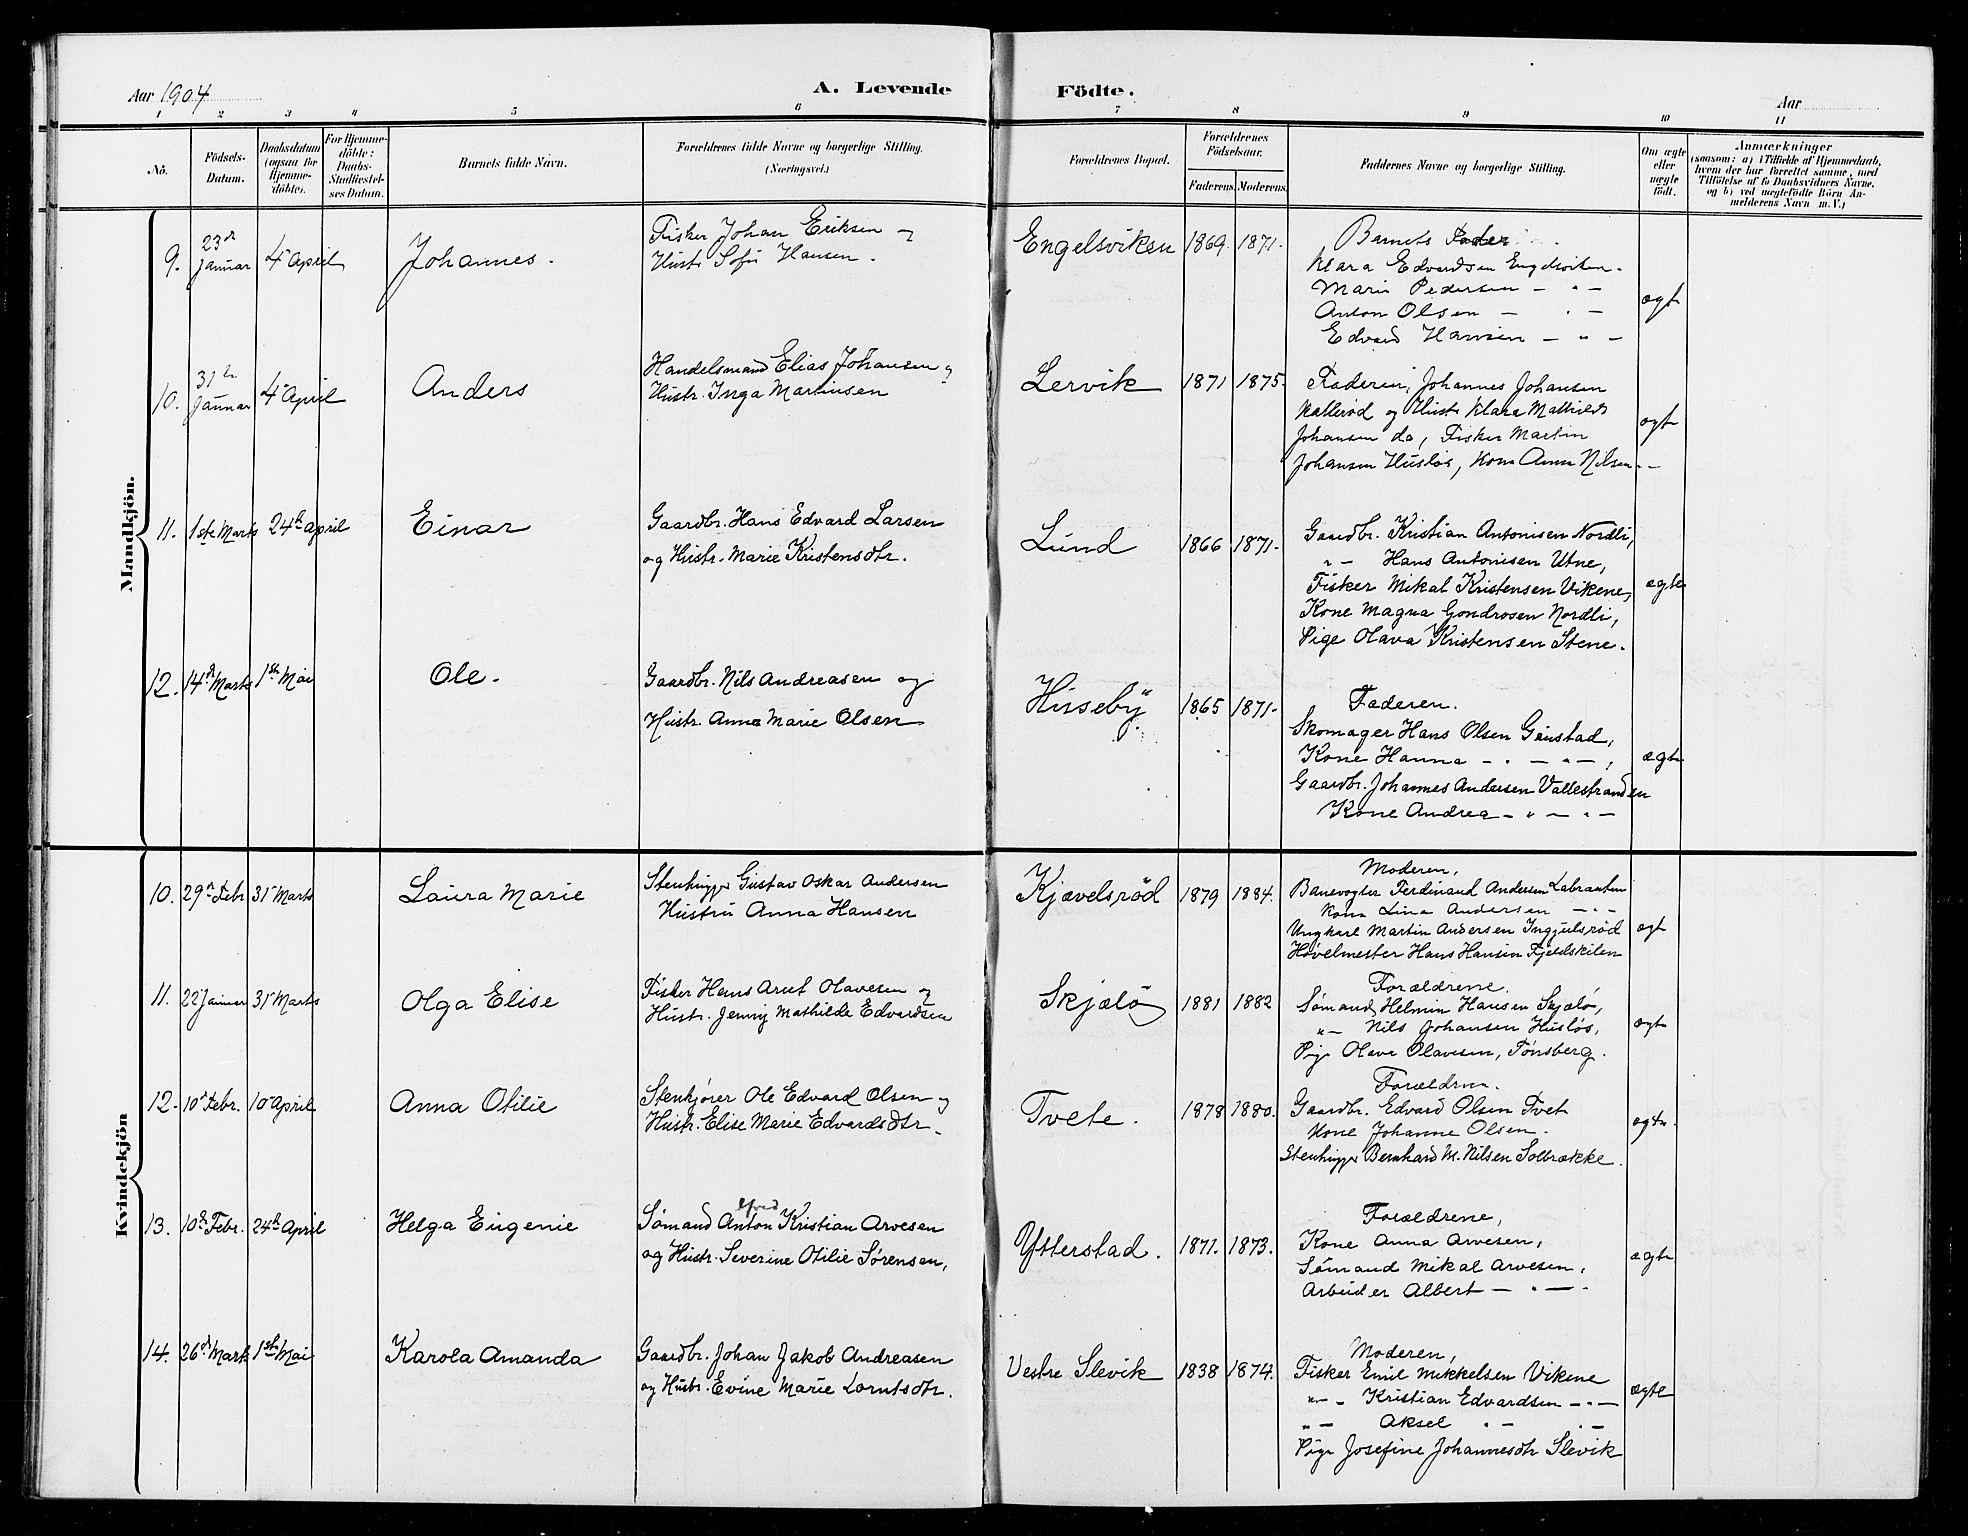 Aar 1904
A. Levende
Födte.
Aar
1 2 3 4 5 6 7 8 9 10 11
No.
Födsels-
Datum.
Daabsdatum
(ogsaa for
Hjemme-
döbte).
For Hjemme-
döbte:
Daabs-
Stadfæstel-
ses Datum.
Barnets fulde Navn.
Forældrenes fulde Navne og borgerlige Stilling.
(Næringsvei.)
Forældrenes Bopæl.
Forældrenes
Födselsaar.
Faderens. Moderens.
Faddernes Navne og borgerlige Stilling.
Om ægte
eller
uægte
født.
Anmærkninger
(saasom: a) i Tilfælde af Hjemmedaab,
hvem der har forrettet samme, med
Tilföielse af to Daabsvidners Navne,
og b) ved uægtefödte Börn An-
melderens Navn m. V.)
Mandkjön.
9. 23de Januar 4 April Johannes.
Fisker Johan Eriksen og
Hustr Sofie Hansen.
Engelsviken 1869. 1871.
Barnets Fader
Klara Edvardsen Engelsviken.
Marie Pedersen — " —
Anton Olsen — " —
Edvard Hansen — " —
ægte
10. 31te Januar 4 April Anders
Handelsmand Elias Johansen og
Hustr. Inga Martinsen
Lervik 1871 1875.
Faderen, Johannes Johansen
Kallerød og Hustr Klara Mathilde
Johansen do, Fisker Martin
Johansen Husløs, Kone Anna Nilsen — " —
ægte
11. 1ste Marts 24de April Einar
Gaardbr. Hans Edvard Larsen
og Hustr. Marie Kristensdtr.
Lund 1866 1871.
Gaardbr. Kristian Antonisen Nordli,
" — Hans Antonisen Utne,
Fisker Mikal Kristensen Vikene,
Kone Magna Gondrosen Nordli,
Pige Olava Kristensen Stene.
ægte
12. 14de Marts 1ste Mai Ole.
Gaardbr. Nils Andreasen og
Hustr. Anna Marie Olsen
Husseby 1865 1871.
Faderen.
Skomager Hans Olsen Grustad,
Kone Hanna — " — " —,
Gaardbr. Johannes Andersen Vallestranden
Kone Andrea — " — " —
ægte
Kvindekjön
10. 29de Febr. 31 Marts Laura Marie
Stenhugger Gustav Oskar Andersen
Hustru Anna Hansen
Kjævelsrød 1879 1884.
Moderen,
Banevogter Ferdinand Andersen Labraaten
Kone Lina Andersen — " —
Ungkarl Martin Andersen Ingjulsrød
Høvelmester Hans Hansen Fjeldskilen
ægte
11. 22 Januar 31 Marts Olga Elise
Fisker Hans Arnt Olavesen og
Hustr. Jenny Mathilde Edvardsen
Skjælø 1881 1882
Forældrene.
Sømand Helmin Hansen Skjælø,
" — Nils Johansen Husløs,
Pige Olava Olavesen, Tønsberg.
ægte
12. 10de Febr. 10de April Anna Otilie
Stenkjører Ole Edvard Olsen og
Hustr. Elise Marie Edvardsdtr.
Tvete. 1878 1880.
Forældrene.
Gaardbr. Edvard Olsen Tvet
Kone Johanne Olsen.
Stenhugger Bernhard M. Nilsen Solbrække.
ægte.
13. 10de Febr. 24de April Helga Eugenie
lfred
Sømand Anton Kristian Arvesen
og Hustr. Severine Otilie Sørensen,
Ytterstad. 1871. 1873.
Forældrene,
Kone Anna Arvesen,
Sømand Mikal Arvesen,
Arbeider Albert — " —
ægte
14. 26de Marts 1ste Mai Karola Amanda
Gaardbr. Johan Jakob Andreasen
og Hustr. Evine Marie Lorntsdtr.
Vestre Slevik 1838 1874.
Moderen,
Fisker Emil Mikkelsen Vikene
" — Kristian Edvardsen — " —
" — Aksel " — " —
Pige Josefine Johannesdtr Slevik
ægte